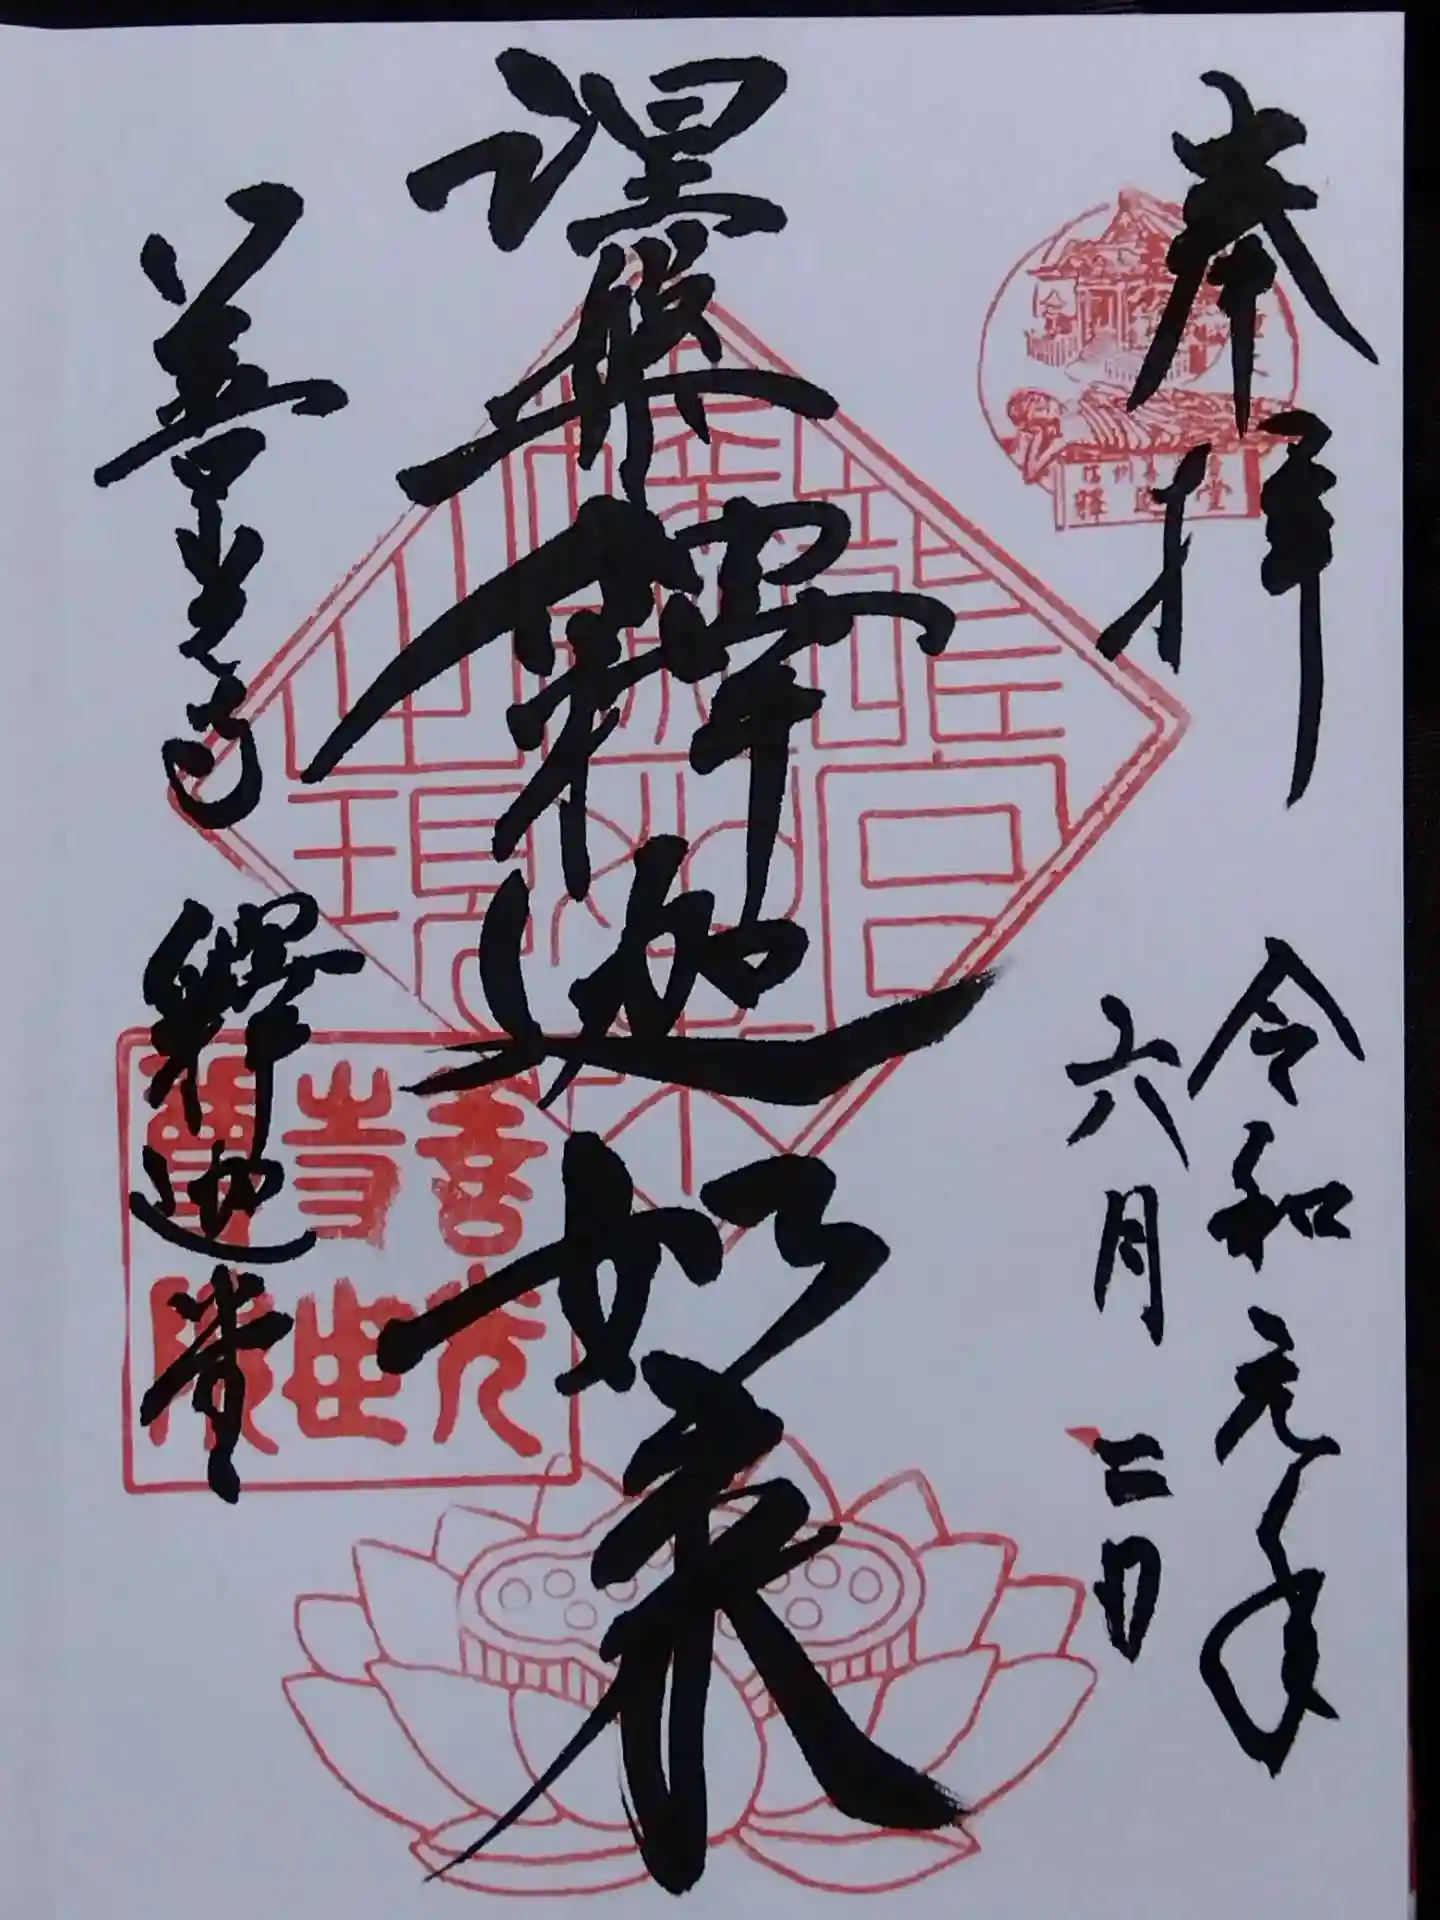 奉拝
令和元年
六月二日
涅槃釋迦如来
善光寺
釋迦堂
信州善光寺
釋迦堂
善光
寺世
尊院